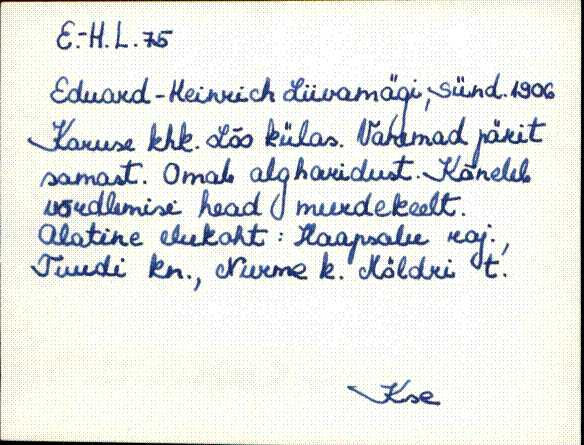 E.-H.L. 75
Eduard-Heinrich Liivamägi, sünd. 1906
Karuse khk. Lõo külas. Vanemad pärit
samast. Omab algharidust. Kõneleb
võrdlemisi head murdekeelt.
Alatine elukoht: Haapsalu raj.,
Tuudi kn., Nurme k. Möldri t.
Kse